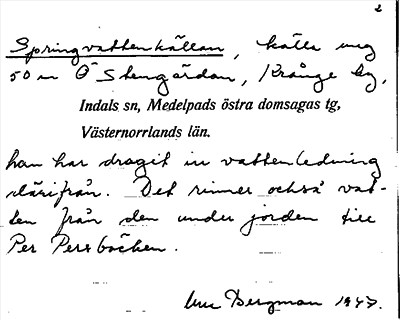 2
Springvattenkällan, källa ung
50 m Ö Stengärdan, Krånge by,
Indals sn, Medelpads östra domsagas tg,
Västernorrlands län.
han har dragit in vattenledning
därifrån. Det rinner också vat-
ten från den under jorden till
Per Persbäcken.
Bergman 1947.